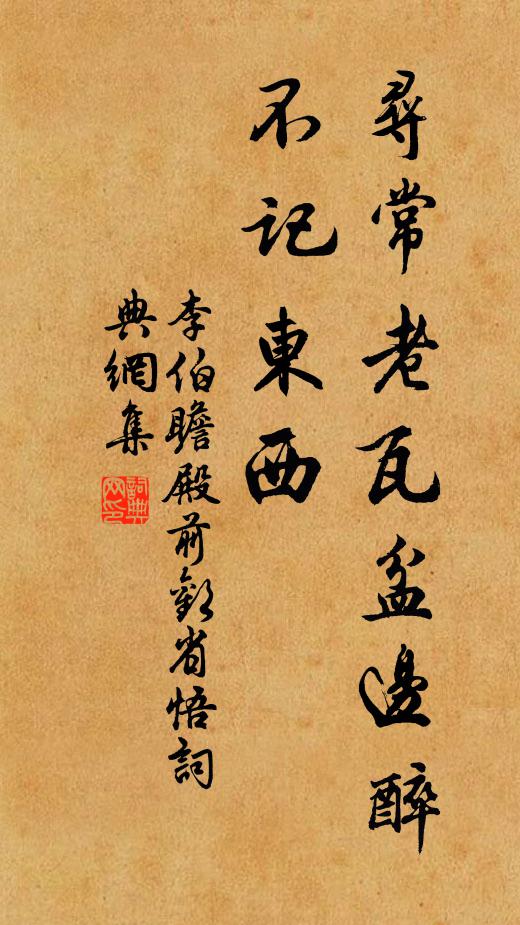 尋常老瓦盆邊醉
不記東西
李伯瞻殿前歡省悟詞
典網集
詞典網印